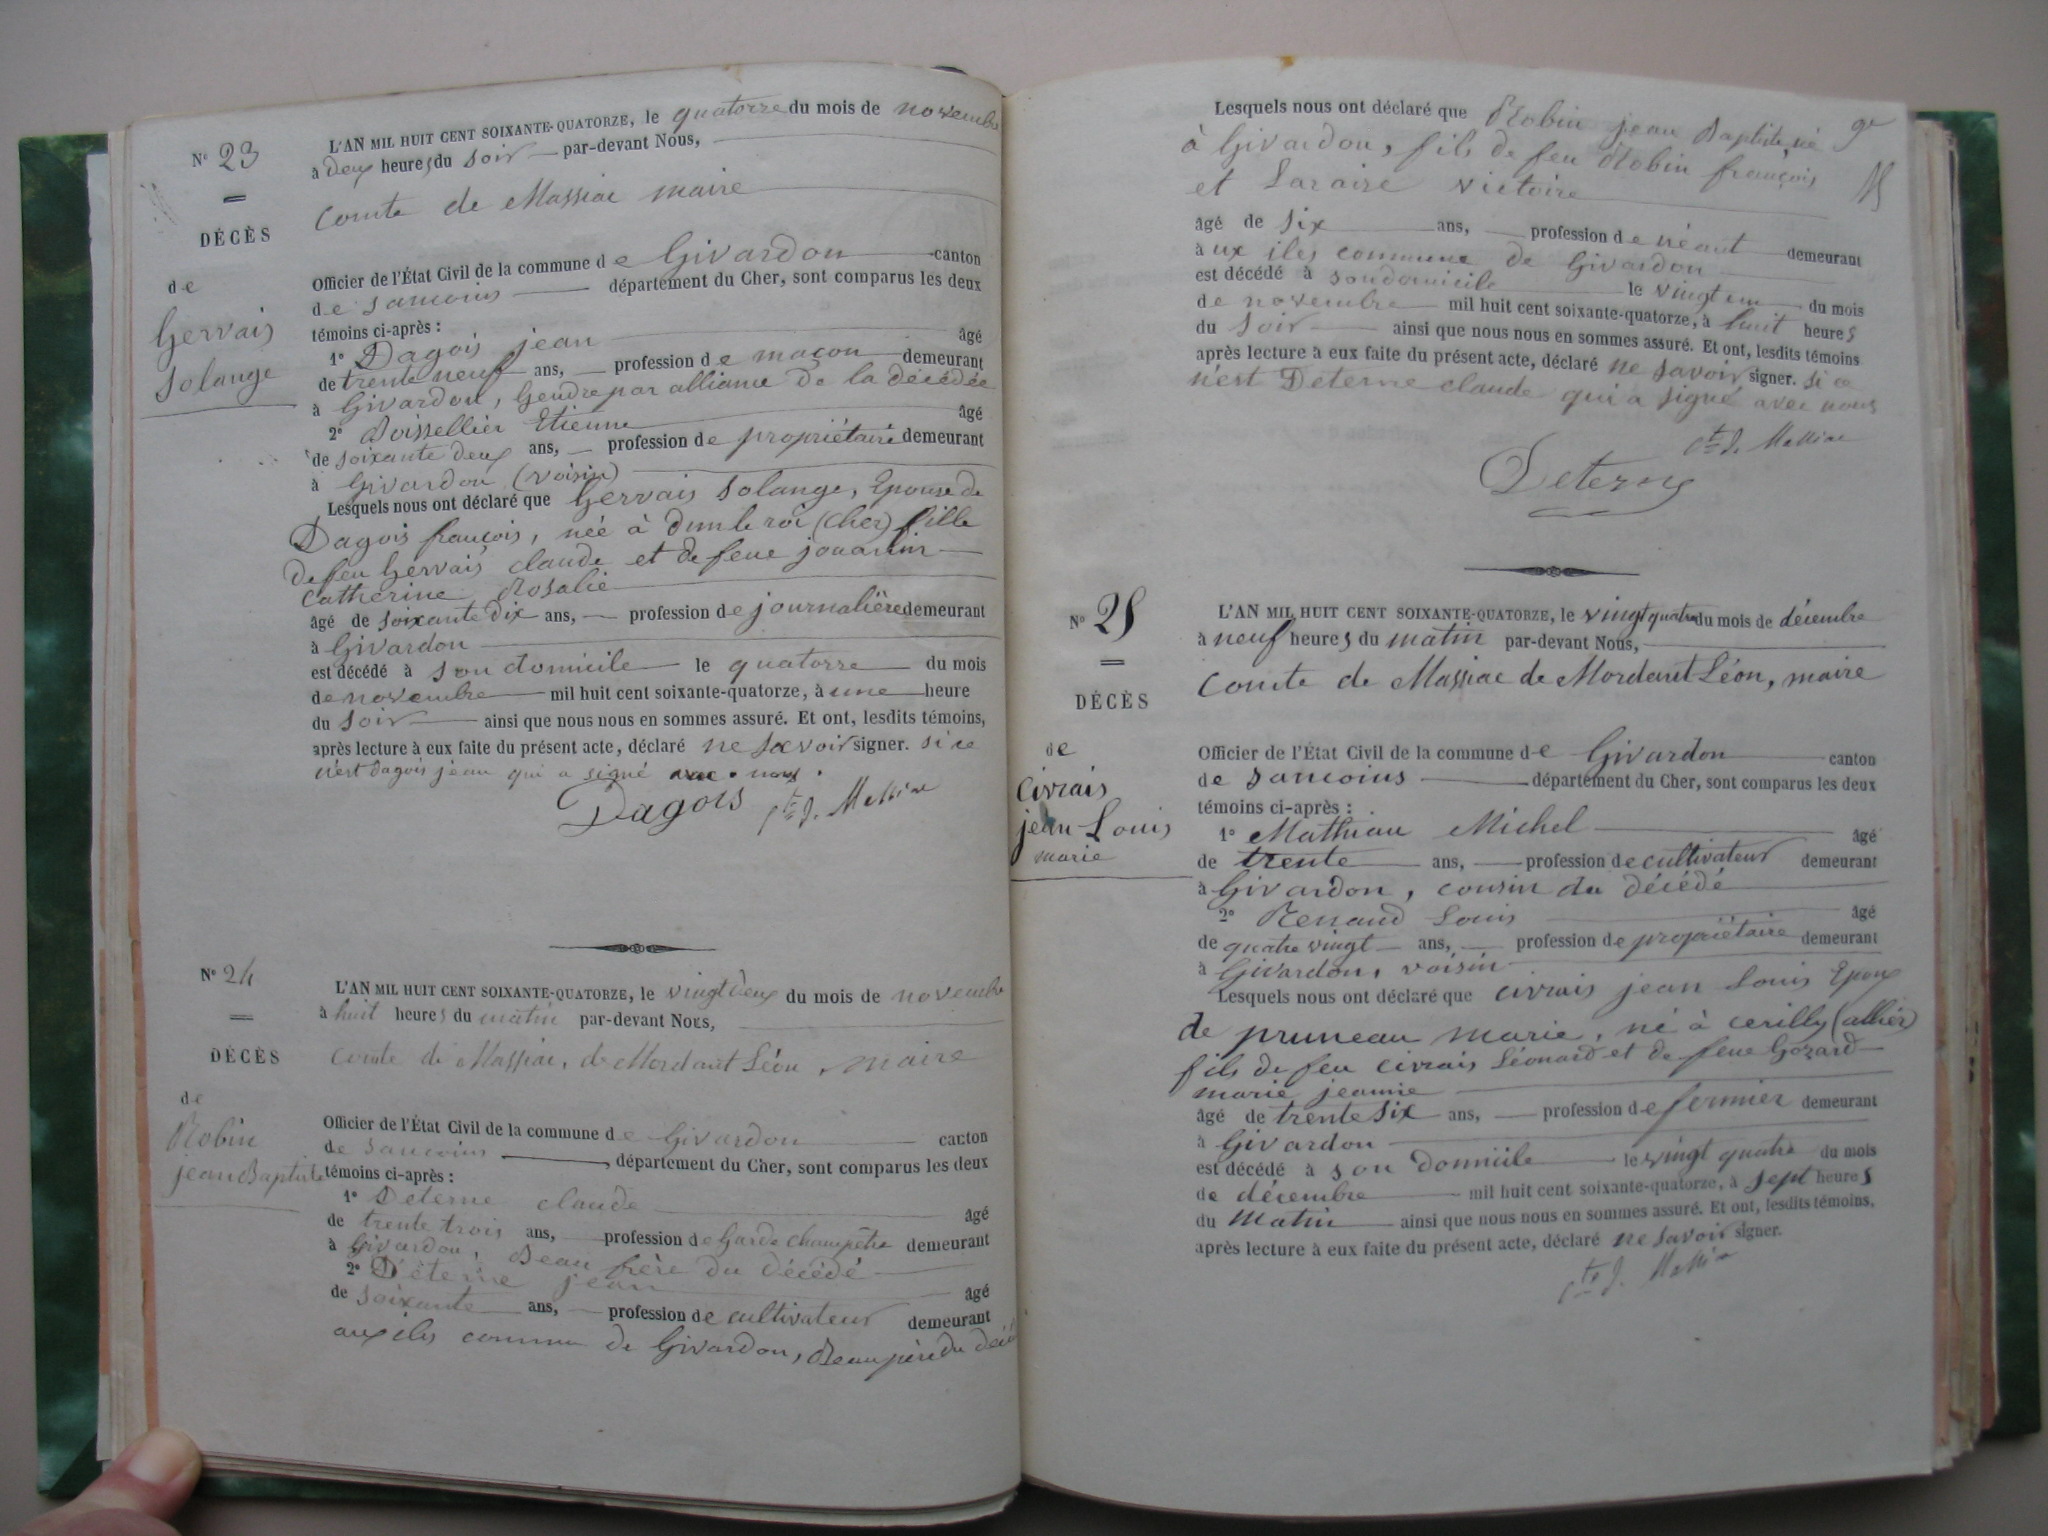 N° 23
DÉCÈS
de
Gervais
Solange
L'AN MIL HUIT CENT SOIXANTE-QUATORZE, le quatorze du mois de novembre
à deux heures du soir par-devant Nous,
Comte de Massiac maire
Officier de l'État Civil de la commune de Givardon canton
de Sancoins département du Cher, sont comparus les deux
témoins ci-après :
1° Dagois jean âgé
de trente neuf ans, profession de maçon demeurant
à Givardon, Gendre par alliance de la décédée
2° Boissellier Etienne âgé
de soixante deux ans, profession de propriétaire demeurant
à Givardon (voisin)
Lesquels nous ont déclaré que Gervais Solange, Epouse de
Dagois françois, née à dun le roi (Cher) fille
de feu Gervais claude et de feue jouannin
Catherine Rosalie
âgé de soixante dix ans, profession de journalière demeurant
à Givardon
est décédé à son domicile le quatorze du mois
de novembre mil huit cent soixante-quatorze, à une heure
du soir ainsi que nous nous en sommes assuré. Et ont, lesdits témoins,
après lecture à eux faite du présent acte, déclaré ne savoir signer. si ce
n'est dagois jean qui a signé avec nous.
Dagois Cte J. Massiac
N° 24
DÉCÈS
de
Robin
jean Baptiste
L'AN MIL HUIT CENT SOIXANTE-QUATORZE, le vingt deux du mois de novembre
à huit heures du matin par-devant Nous,
Comte de Massiac, de Mordant Léon, maire
Officier de l'État Civil de la commune de Givardon canton
de Sancoins département du Cher, sont comparus les deux
témoins ci-après :
1° Deterne claude âgé
de trente trois ans, profession de Garde champêtre demeurant
à Givardon, Beau frère du décédé
2° Déterne jean âgé
de soixante ans, profession de cultivateur demeurant
aux iles commune de Givardon, Beau père du décédé
Lesquels nous ont déclaré que Robin jean Baptiste, né
à Givardon, fils de feu Robin françois
et Laraire victoire
âgé de six ans, profession de néant demeurant
aux iles commune de Givardon
est décédé à son domicile le vingt un du mois
de novembre mil huit cent soixante-quatorze, à huit heures
du soir ainsi que nous nous en sommes assuré. Et ont, lesdits témoins
après lecture à eux faite du présent acte, déclaré ne savoir signer. si ce
n'est Deterne claude qui a signé avec nous
Cte J. Massiac
Deterne
N° 25
DÉCÈS
de
Civrais
jean Louis
marie
L'AN MIL HUIT CENT SOIXANTE-QUATORZE, le vingt quatre du mois de décembre
à neuf heures du matin par-devant Nous,
Comte de Massiac de Mordant Léon, maire
Officier de l'État Civil de la commune de Givardon canton
de Sancoins département du Cher, sont comparus les deux
témoins ci-après :
1° Mathiau Michel âgé
de trente ans, profession de cultivateur demeurant
à Givardon, cousin du décédé
2° Renaud Louis âgé
de quatre vingt ans, profession de propriétaire demeurant
à Givardon, voisin
Lesquels nous ont déclaré que civrais jean Louis Epoux
de pruneau marie, né à cerilly (allier)
fils de feu civrais Léonard et de feue Gozard
marie jeanne
âgé de trente six ans, profession de fermier demeurant
à Givardon
est décédé à son domicile le vingt quatre du mois
de décembre mil huit cent soixante-quatorze, à sept heures
du matin ainsi que nous nous en sommes assuré. Et ont, lesdits témoins,
après lecture à eux faite du présent acte, déclaré ne savoir signer.
Cte J. Massiac